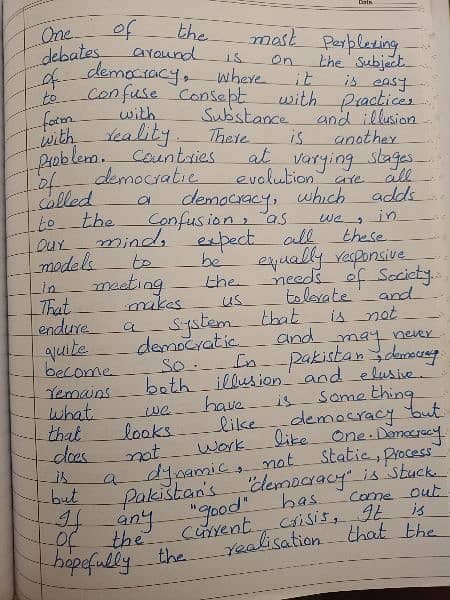 Date
One of the most Perplexing
debates around is on the subject
of democracy, where it is easy
to confuse consept with practice,
form with substance and illusion
with reality. There is another
problem. Countries at varying stages
of democratic evolution are all
called a democracy, which adds
to the confusion, as we, in
our mind, expect all these
models to be equally responsive
in meeting the needs of Society.
That makes us tolerate and
endure a system that is not
quite democratic and may never
become so. In Pakistan, democracy
remains both illusion and elusive.
what we have is something
that looks like democracy but
does not work like one. Democracy
is a dynamic, not static, process
but Pakistan's "democracy" is stuck
If any "good" has come out
of the current crisis, It is
hopefully the realisation that the